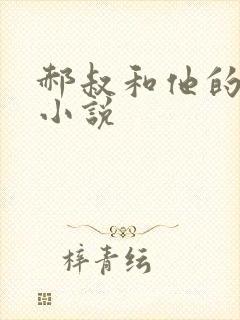 郝叔和他的
小说
梓青纭